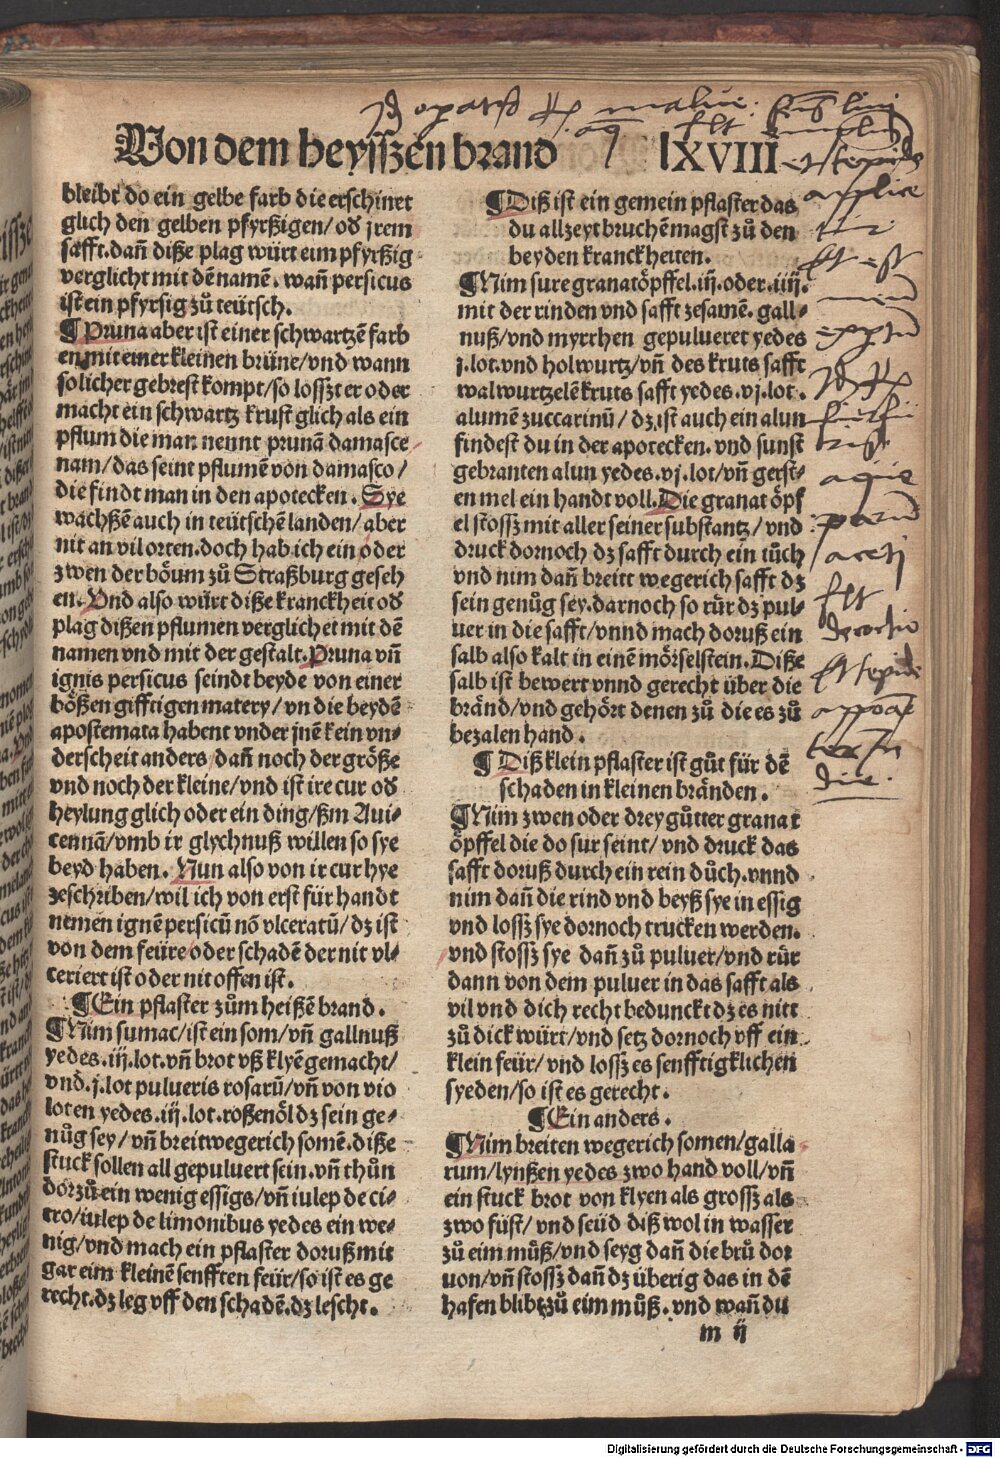 Von dem heyſſzen brand lXVIII
bleibt do ein gelbe farb die erſchinet
glich den gelben pfyrßigen/ od jrem
ſafft. dañ diße plag würt eim pfyrßig
verglicht mit dē namē. wañ perſicus
iſt ein pfyrſig zů teütſch.
¶ Pruna aber iſt einer ſchwartzē farb
en mit einer kleinen brüne/ vnd wann
ſolicher gebreſt kompt/ ſo loſſzt er oder
macht ein ſchwartz kruſt glich als ein
pflum die man nennt prunā damaſce
nam/ das ſeint pflumē von damaſco/
die findt man in den apotecken. Sye
wachßē auch in teütſchē landen/ aber
nit an vil orten. doch hab ich ein oder
zwen der böum zů Straßburg geſeh
en. Vnd alſo würt diße kranckheit od
plag dißen pflumen verglichet mit dē
namen vnd mit der geſtalt. Pruna vñ
ignis perſicus ſeindt beyde von einer
bößen gifftigen matery/ vn die beydē
apoſtemata habent vnder jnē kein vn⸗
derſcheit anders/ dañ noch der größe
vnd noch der kleine/ vnd iſt ire cur od
heylung glich oder ein ding/ ßm Aui⸗
cennā/ vmb ir glychnuß willen ſo ſye
beyd haben. Nun alſo von ir cur hye
zeſchriben/ wil ich von erſt für handt
nemen ignē perſicū nō vlceratū/ dz iſt
von dem feüre oder ſchadē der nit vl⸗
ceriert iſt oder nit offen iſt.
¶ Ein pflaſter zům heißē brand.
¶ Nim ſumac/ iſt ein ſom/ vñ gallnuß
yedes. iij. lot. vñ brot vß klyē gemacht/
vnd. j. lot pulueris roſarū/ vñ von vio
loten yedes. iij. lot. roßenöl dz ſein ge⸗
nůg ſey/ vñ breitwegerich ſomē. diße
ſtuck ſollen all gepuluert ſein. vñ thůn
dorzů ein wenig eſſigs/ vñ iulep de ci⸗
tro/ iulep de limonibus yedes ein we⸗
nig/ vnd mach ein pflaſter doruß mit
gar eim kleinē ſenfften feür/ ſo iſt es ge
recht. dz leg vff den ſchadē. dz leſcht.
¶ Diß iſt ein gemein pflaſter das
du allzeyt bruchē magſt zů den
beyden kranckheiten.
¶ Nim ſure granatöpffel. iij. oder. iiij.
mit der rinden vnd ſafft zeſamē. gall⸗
nuß/ vnd myrrhen gepulueret yedes
j. lot. vnd holwurtz/ vñ des kruts ſafft
walwurtzelē kruts ſafft yedes. vj. lot.
alumē zuccarinū/ dz iſt auch ein alun
findeſt du in der apotecken. vnd ſunſt
gebranten alun yedes. vj. lot/ vñ gerſt⸗
en mel ein handt voll. Die granat öpf
el ſtoſſz mit aller ſeiner ſubſtantz/ vnd
druck dornoch dz ſafft durch ein tůch
vnd nim dañ breitt wegerich ſafft dz
ſein genůg ſey. darnoch ſo rür dz pul⸗
uer in die ſafft/ vnnd mach doruß ein
ſalb alſo kalt in einē mörſelſtein. Diße
ſalb iſt bewert vnnd gerecht über die
bränd/ vnd gehört denen zů die es zů
bezalen hand.
¶ Diß klein pflaſter iſt gůt für dē
ſchaden in kleinen bränden.
¶ Nim zwen oder drey gůtter granat
öpffel die do ſur ſeint/ vnd druck das
ſafft doruß durch ein rein důch. vnnd
nim dañ die rind vnd beyß ſye in eſſig
vnd loſſz ſye dornoch trucken werden.
vnd ſtoſſz ſye dañ zů puluer/ vnd rür
dann von dem puluer in das ſafft als
vil vnd dich recht bedunckt dz es nitt
zů dick würt/ vnd ſetz dornoch vff ein
klein feür/ vnd loſſz es ſenfftigklichen
ſyeden/ ſo iſt es gerecht.
¶ Ein anders.
¶ Nim breiten wegerich ſomen/ galla
rum/ lynßen yedes zwo hand voll/ vñ
ein ſtuck brot von klyen als groſſz als
zwo füſt/ vnd ſeüd diß wol in waſſer
zů eim můß/ vnd ſeyg dañ die brů dor
uon/ vñ ſtoſſz dañ dz überig das in dē
hafen blibt zů eim můß. vnd wañ du
m ij
malue
applice
aque
aceti
decoctio
die.
Digitalisierung gefördert durch die Deutsche Forschungsgemeinschaft - DFG